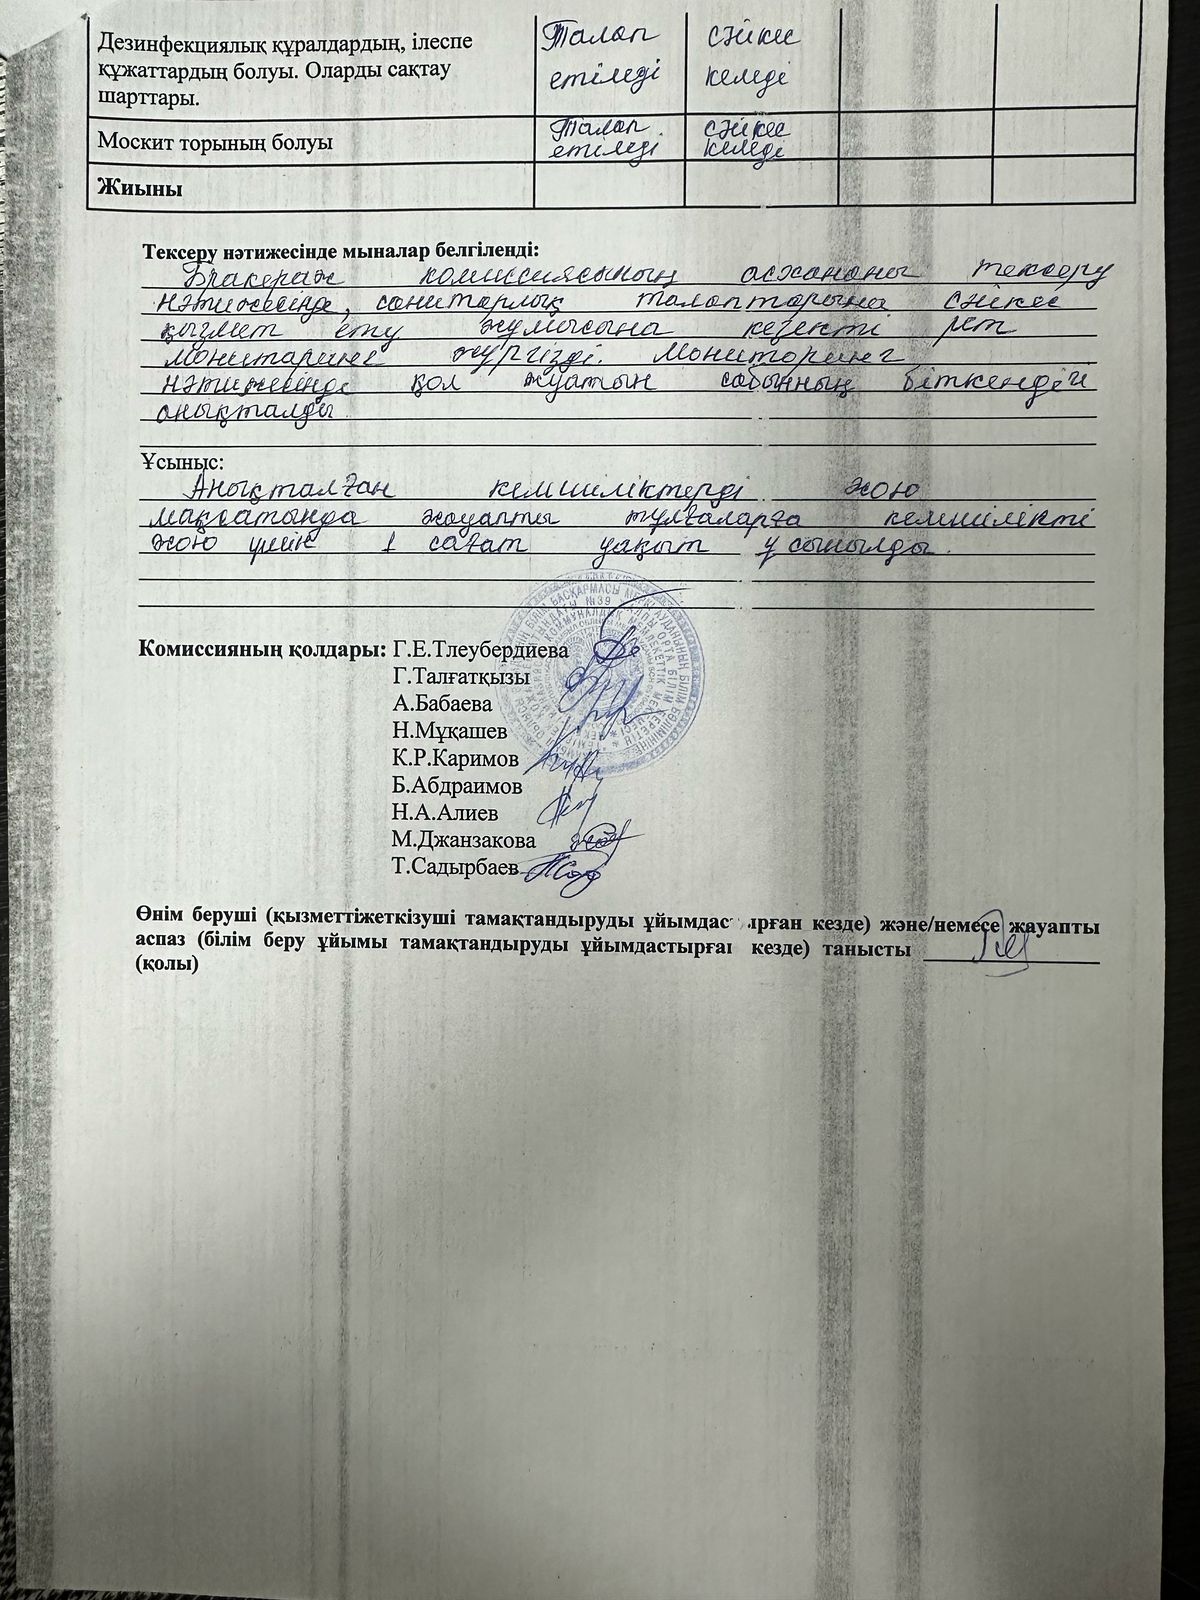 Дезинфекциялық құралдардың, ілеспе құжаттардың болуы. Оларды сақтау шарттары. Талап етіледі сәйкес келеді
Москит торының болуы Талап етіледі сәйкес келеді
Жиыны
Тексеру нәтижесінде мыналар белгіленді:
Бракераж комиссиясының асхананы тексеру
нәтижесінде, санитарлық талаптарына сәйкес
қызмет ету жұмысына кезекті рет
мониторинг жүргізді. Мониторинг
нәтижесінде қол жуатын сабынның біткендігі
анықталды.
Ұсыныс:
Анықталған кемшіліктерді жою
мақсатында жауапты тұлғаларға кемшілікті
жою үшін 1 сағат уақыт ұсынылды.
Комиссияның қолдары: Г.Е.Тлеубердиева
Г.Талғатқызы
А.Бабаева
Н.Мұқашев
К.Р.Каримов
Б.Абдраимов
Н.А.Алиев
М.Джанзакова
Т.Садырбаев
Өнім беруші (қызметтіжеткізуші тамақтандыруды ұйымдас ырған кезде) және/немесе жауапты
аспаз (білім беру ұйымы тамақтандыруды ұйымдастырға кезде) танысты
(қолы)